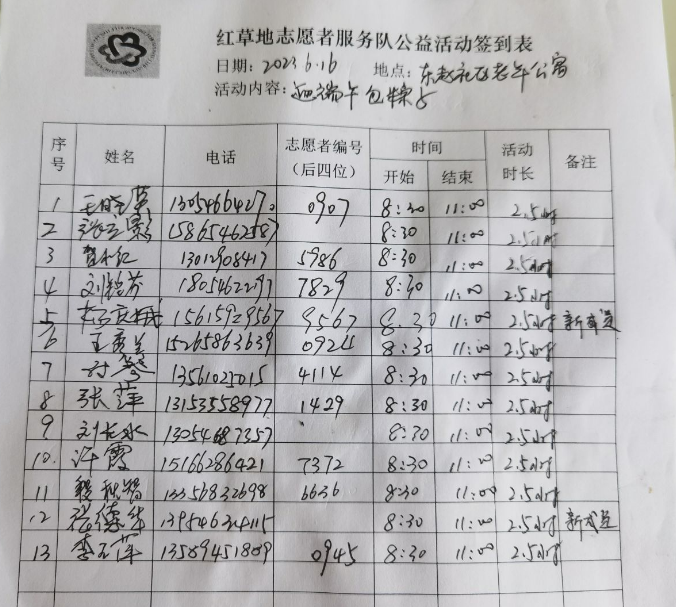 红草地志愿者服务队公益活动签到表
日期：2023.6.16 地点：东赵社区老年公寓
活动内容：迎端午包粽子
序号 姓名 电话 志愿者编号（后四位） 时间 开始 结束 活动时长 备注
1 0907 8:30 11:00 2.5小时
2 15865462587 8:30 11:00 2.5小时
3 13012908417 5986 8:30 11:00 2.5小时
4 刘铭芬 18054622197 7829 8:30 11:00 2.5小时
5 15615929567 9567 8:30 11:00 2.5小时 新成员
6 15265863639 0924 8:30 11:00 2.5小时
7 13561025015 4114 8:30 11:00 2.5小时
8 张萍 13153558977 1429 8:30 11:00 2.5小时
9 刘长水 13054687357 8:30 11:00 2.5小时
10. 许霞 15166286421 7372 8:30 11:00 2.5小时
11 13356832698 6636 8:30 11:00 2.5小时
12 8:30 11:00 2.5小时 新成员
13 李玉萍 13589451889 0945 8:30 11:00 2.5小时